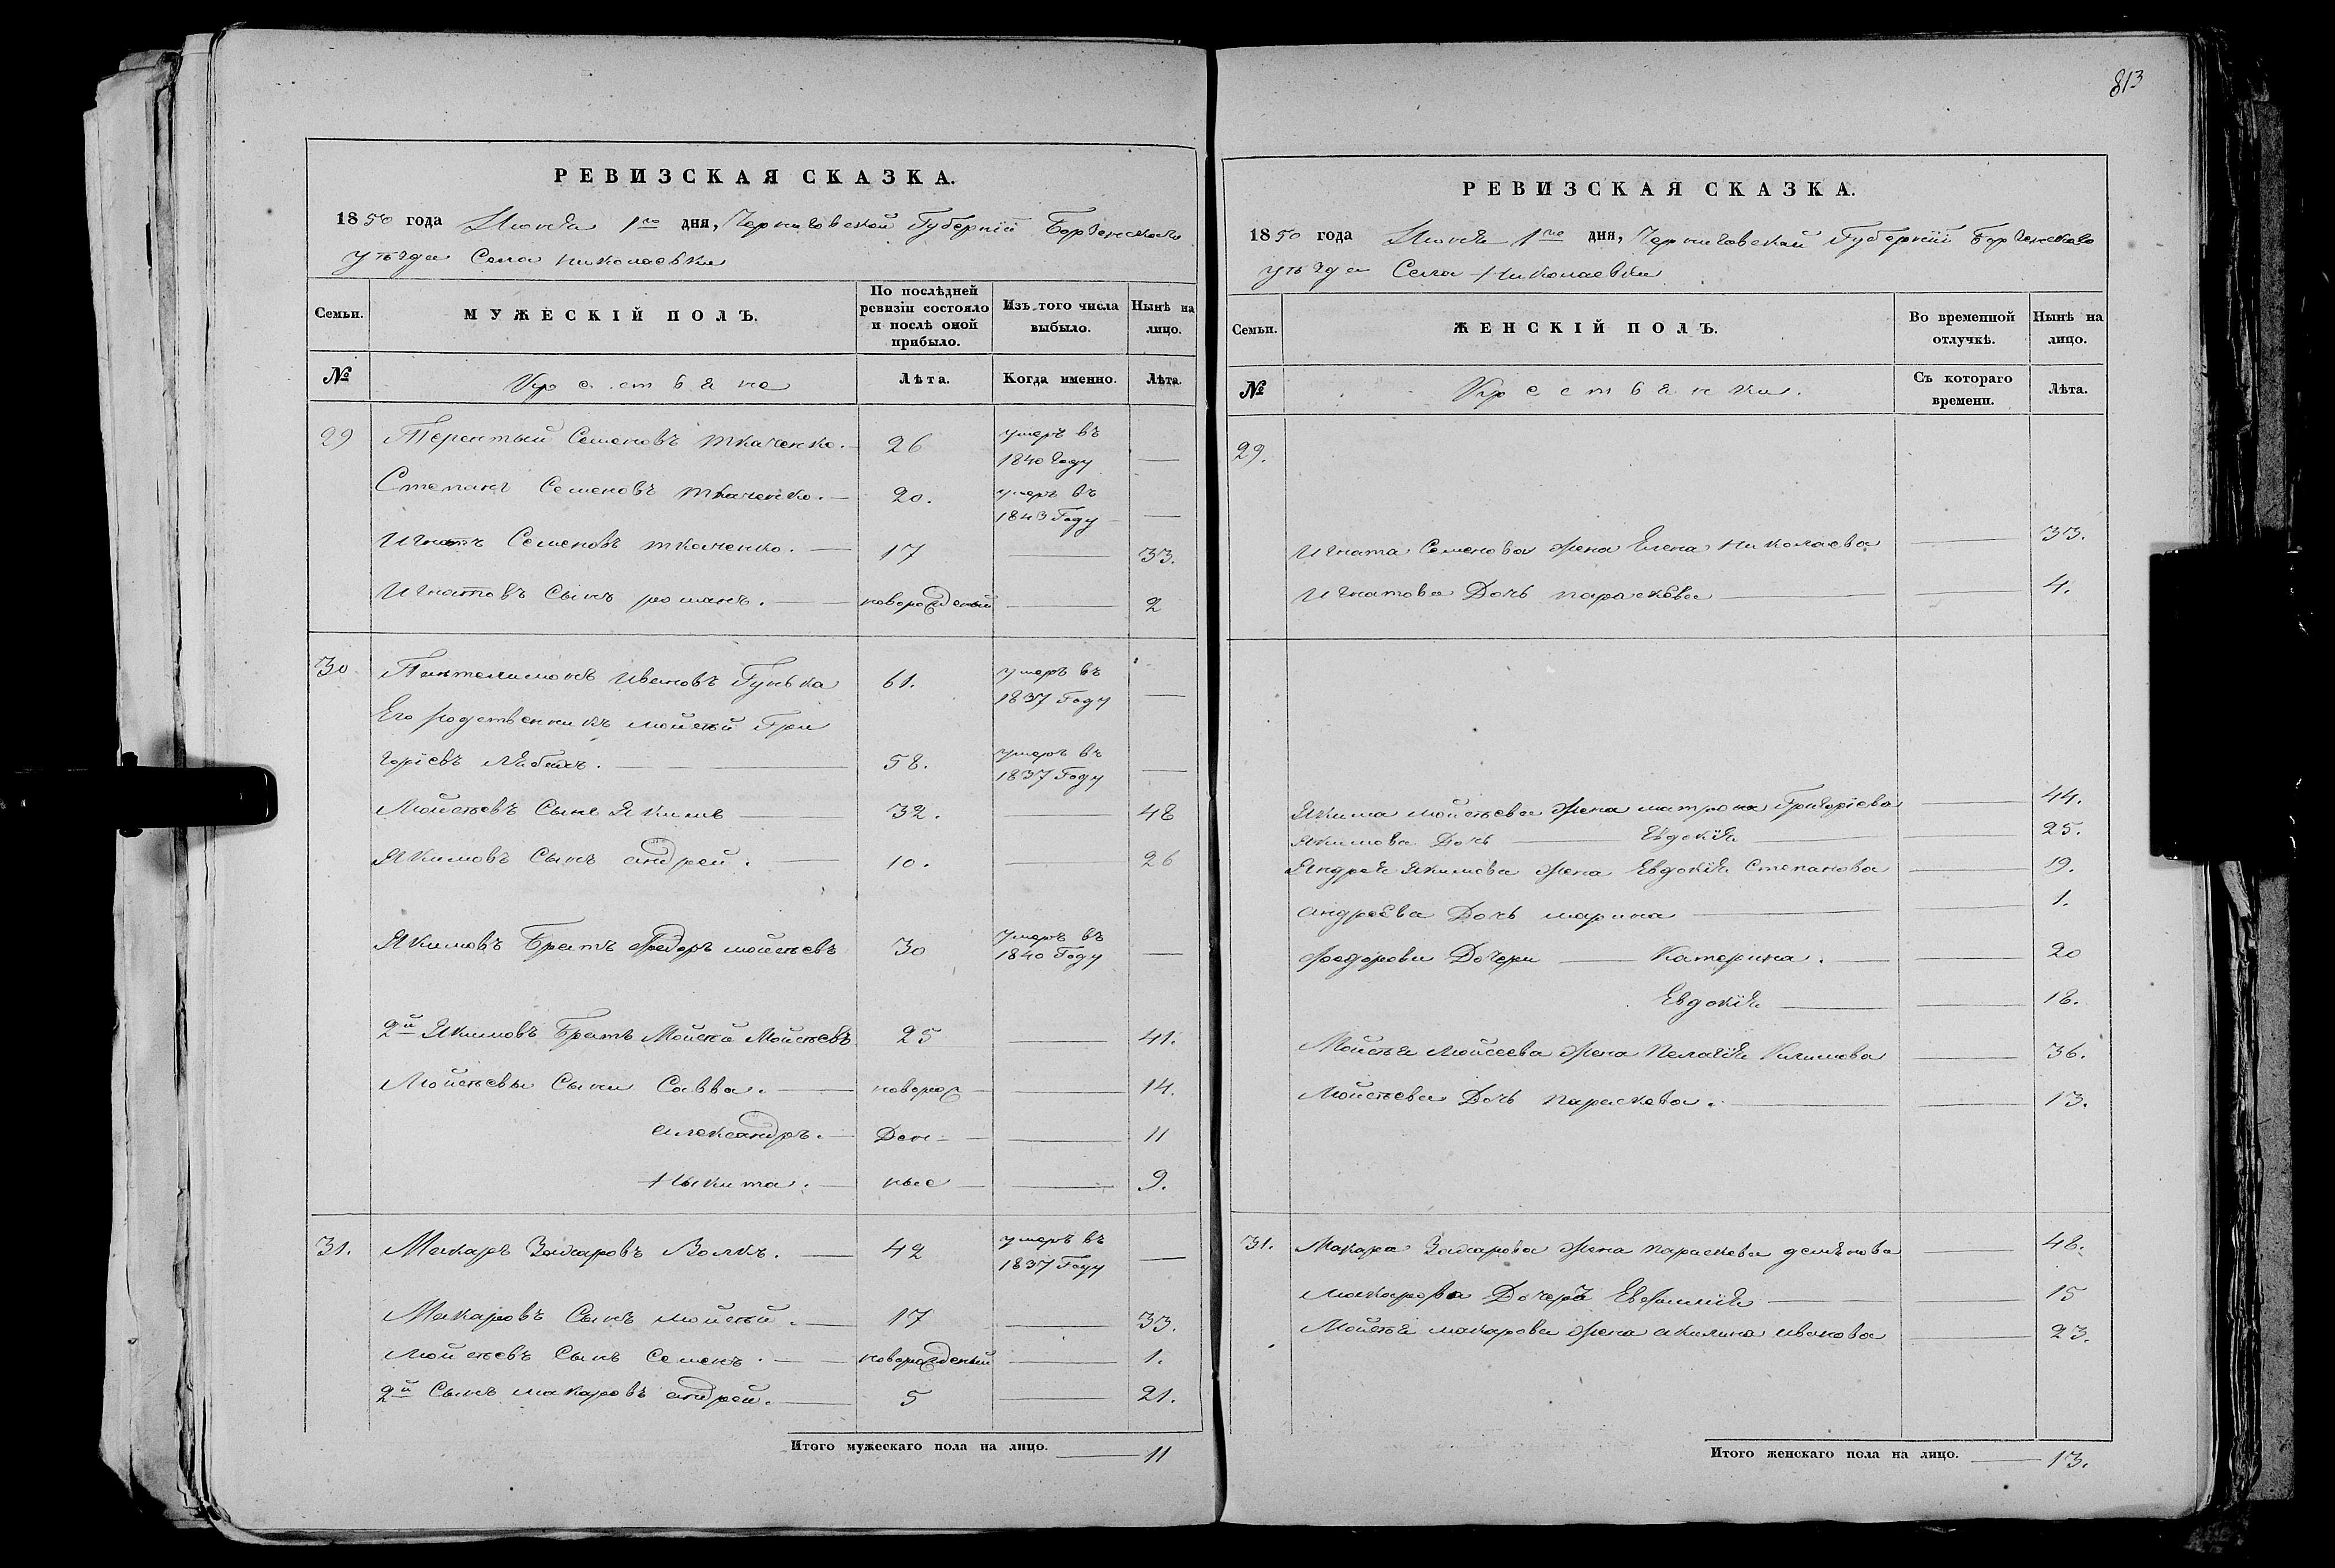 РЕВИЗСКАЯ СКАЗКА.
1850 года Июня 1го дня, Черниговской Губернїи Борзенскаго
уѣзда Села Николаевки
Семьи.
МУЖЕСКІЙ ПОЛЪ.
По послѣдней ревизіи состояло и послѣ оной прибыло.
Изъ того числа выбыло.
Нынѣ на лицо.
№
Крестьяне
Лѣта.
Когда именно.
Лѣта.
29 Терентый Семеновъ Ткаченко. 26 умеръ въ 1840 Году —
Степанъ Семеновъ Ткаченко. — 20. умеръ въ 1843 Году —
Игнатъ Семеновъ ткаченко. — 17 — 33.
Игнатовъ Сынъ романъ. — новорожденый — 2
30 Пантелимонъ Ивановъ Гунька 61. умеръ въ 1837 Году —
Его родственникъ мойсей Гри
горіевъ — 58. умеръ въ 1837 Году —
Мойсѣевъ Сынъ Якимъ — 32. — 48
Якимовъ Сынъ андрей. — 10. — 26
Якимовъ Братъ Федоръ мойсѣевъ 30 умеръ въ 1840 Году —
2й Якимовъ Братъ Мойсей Мойсѣевъ 25 — 41.
Мойсѣевы Сыни Савва. — новорож — 14.
александръ. — Ден — 11
Никита. — ные — 9.
31. Макаръ Захаровъ Волкъ. — 42 умеръ въ 1837 Году —
Макаровъ Сынъ мойсей. — 17 — 33.
Мойсѣевъ Сынъ Семенъ. — новорожденый — 1.
2й Сынъ макаровъ андрей. — 5 — 21.
Итого мужескаго пола на лицо. — 11
813
РЕВИЗСКАЯ СКАЗКА.
1850 года Июня 1го дня, Черниговской Губернїи Борзенскаго
уѣзда Села Николаевки
Семьи.
ЖЕНСКІЙ ПОЛЪ.
Во временной отлучкѣ.
Нынѣ на лицо.
№
Крестьянки.
Съ котораго времени.
Лѣта.
29.
Игната Семенова жена Елена Николаева — 33.
Игнатова Дочь параскева — 4.
Якима мойсѣева жена матрона Григоріева — 44.
Якимова Дочь — Евдокія — 25.
Андрея Якимова жена Евдокія Степанова — 19.
андреева Дочь марина — 1.
Федорови Дочери — Катерина. — 20
Евдокія — 18.
Мойсѣя Мойсеева жена Пелагія Климова — 36.
Мойсѣева Дочь параскева. — 13.
31. Макара Захарова жена параскева — 48.
макарова Дочеръ — 15
Мойсѣя макарова жена акилина иванова — 23.
Итого женскаго пола на лицо. — 13.